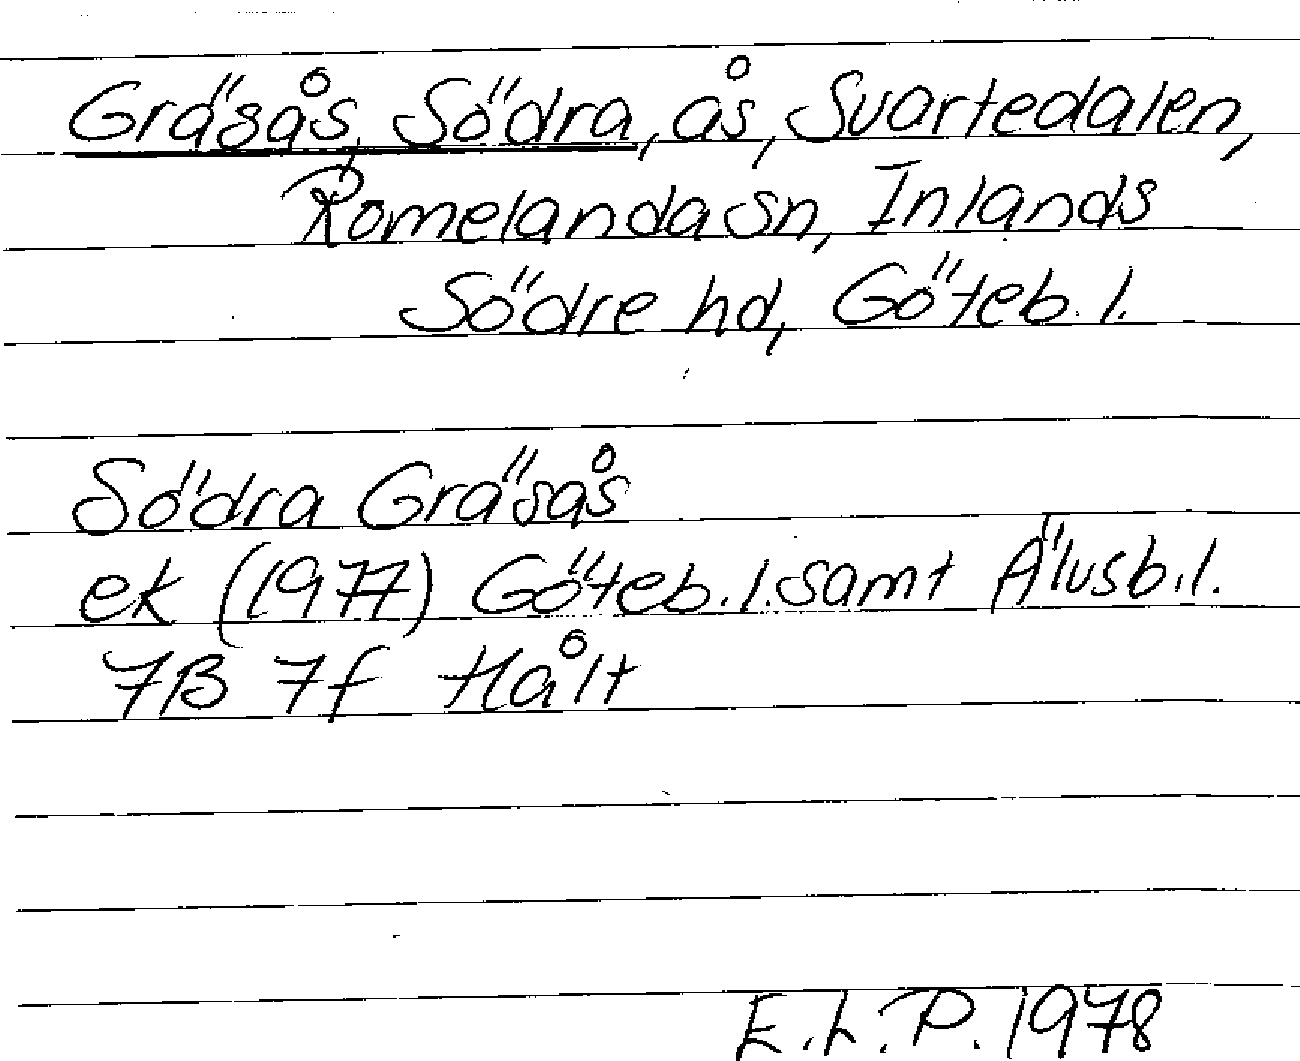 Gräsås, Södra, ås, Svartedalen,
Romelanda sn, Inlands
Södre hd, Göteb. l.
Södra Gräsås
ek (1977) Göteb. l. samt Älvsb. l.
7B 7f Hålt
E.L.P. 1978